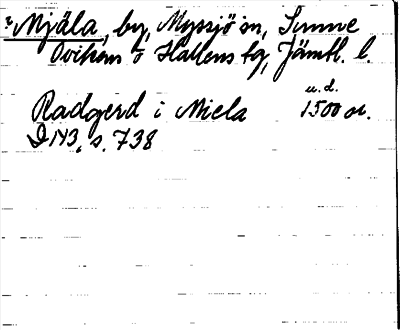 ? Mjäla, by, Myssjö sn, Sunne
Ovikens o Hallens tg, Jämtl. l.
u.d.
Radgerd i Miela 1500 al.
D 143, s. 738